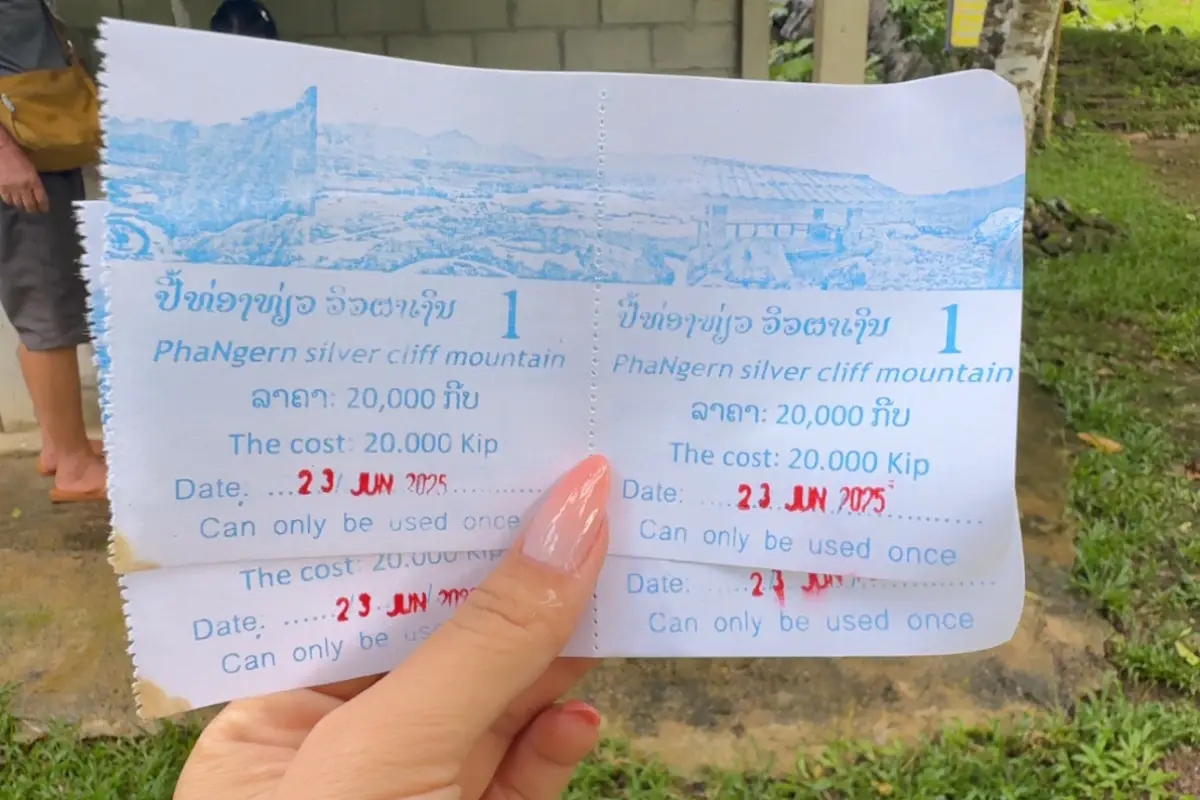 ປີ້ທ່ອງທ່ຽວ ວິວຜາເງິນ 1
PhaNgern silver cliff mountain
ລາຄາ: 20,000 ກີບ
The cost: 20.000 Kip
Date: 23 JUN 2025
Can only be used once
ປີ້ທ່ອງທ່ຽວ ວິວຜາເງິນ 1
PhaNgern silver cliff mountain
ລາຄາ: 20,000 ກີບ
The cost: 20.000 Kip
Date: 23 JUN 2025
Can only be used once
The cost: 20.000 Kip
Date: 23 JUN
Can only be
Date: 23 JUN
Can only be used once